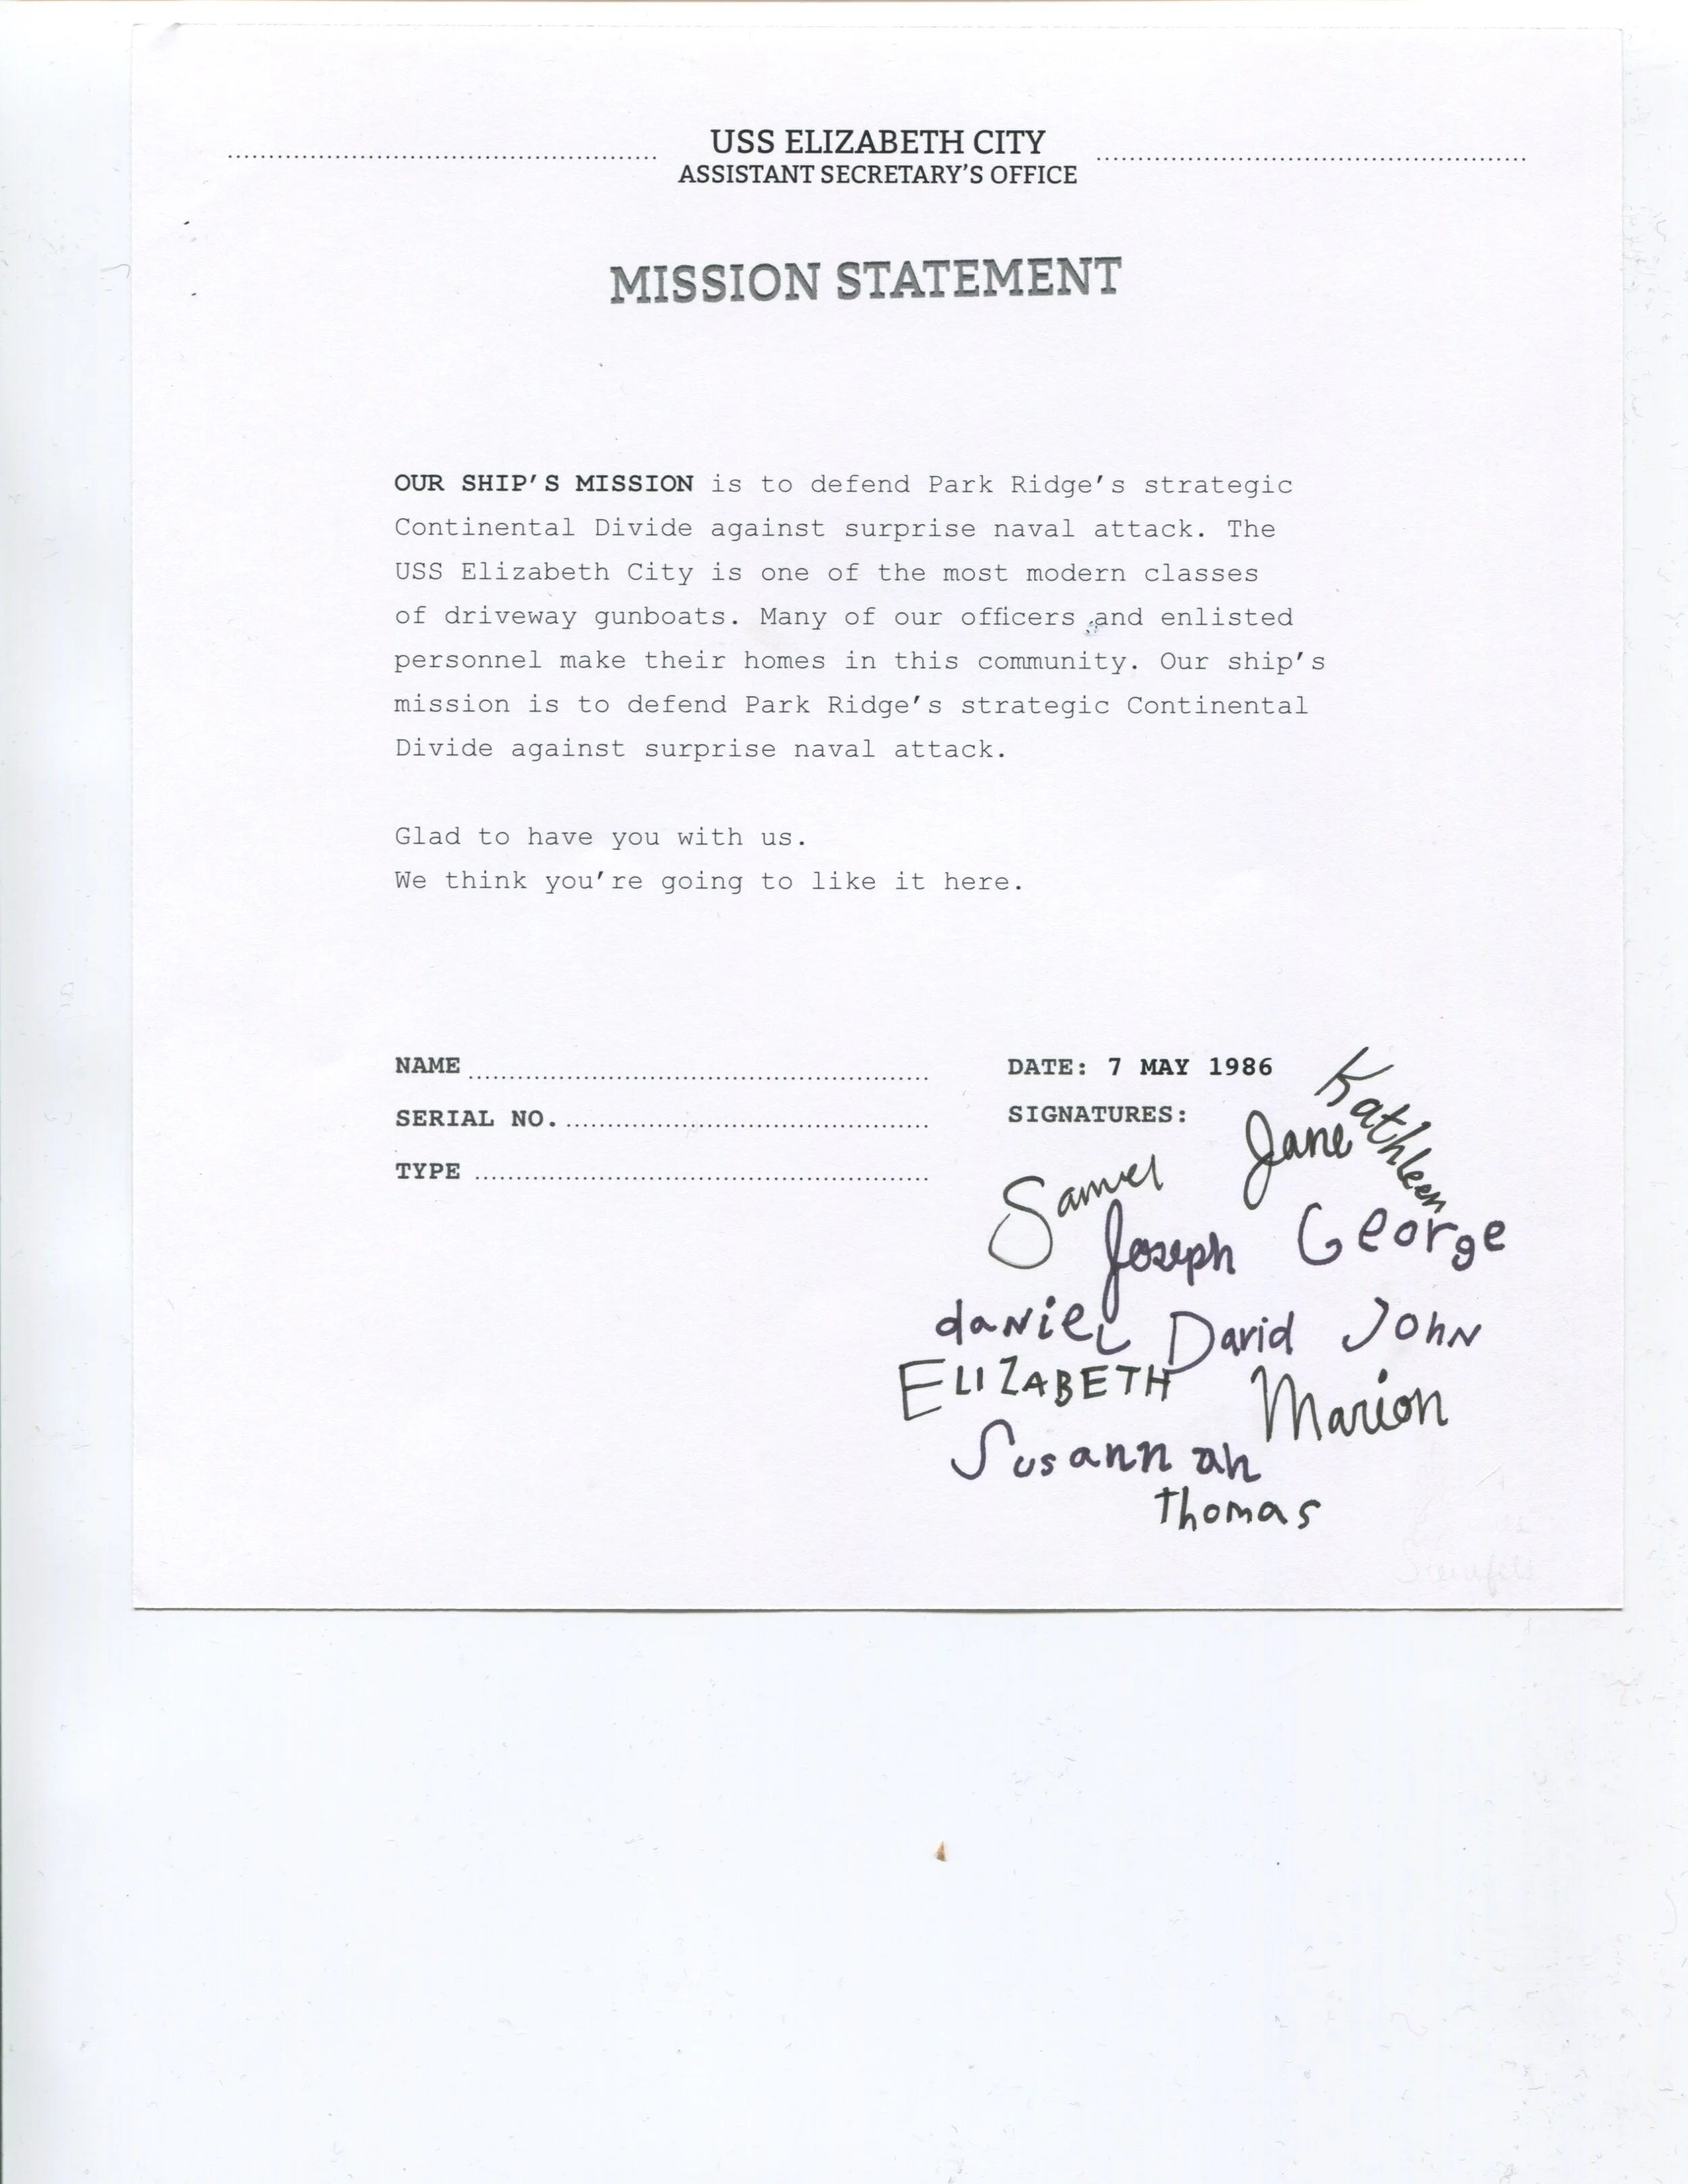 USS ELIZABETH CITY
ASSISTANT SECRETARY'S OFFICE
MISSION STATEMENT
OUR SHIP'S MISSION is to defend Park Ridge's strategic
Continental Divide against surprise naval attack. The
USS Elizabeth City is one of the most modern classes
of driveway gunboats. Many of our officers and enlisted
personnel make their homes in this community. Our ship's
mission is to defend Park Ridge's strategic Continental
Divide against surprise naval attack.
Glad to have you with us.
We think you're going to like it here.
NAME
SERIAL NO.
TYPE
DATE: 7 MAY 1986
SIGNATURES:
Kathleen
Jane
Samuel
Joseph George
daniel David John
ELIZABETH Marion
Susannah
Thomas